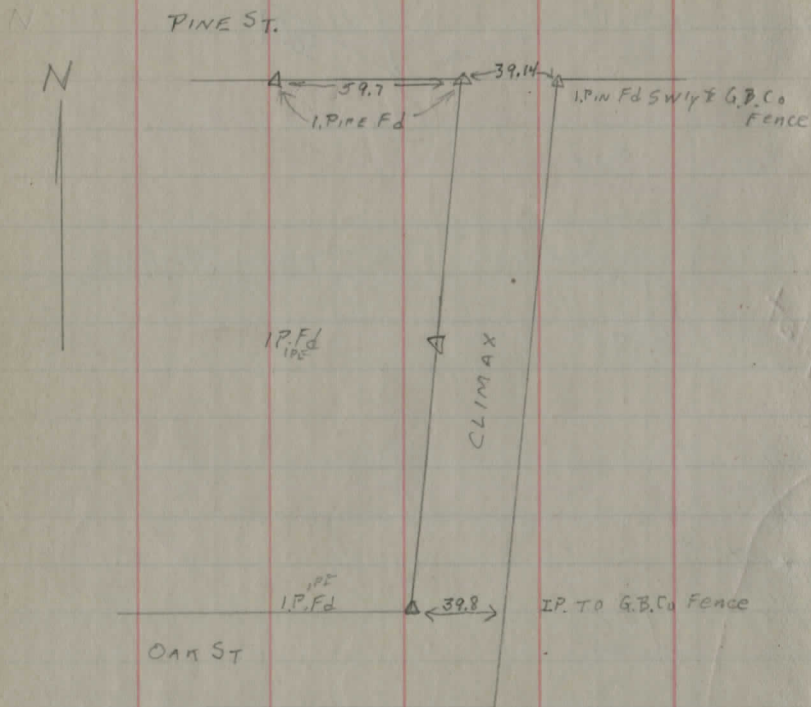 PINE ST.
N
59.7
39.14
I.PIPE Fd
I.PIN Fd SWly & G.B.Co
Fence
I.P.Fd
IPE
CLIMAX
IPE
I.P.Fd
39.8
I.P. TO G.B.Co Fence
OAK ST